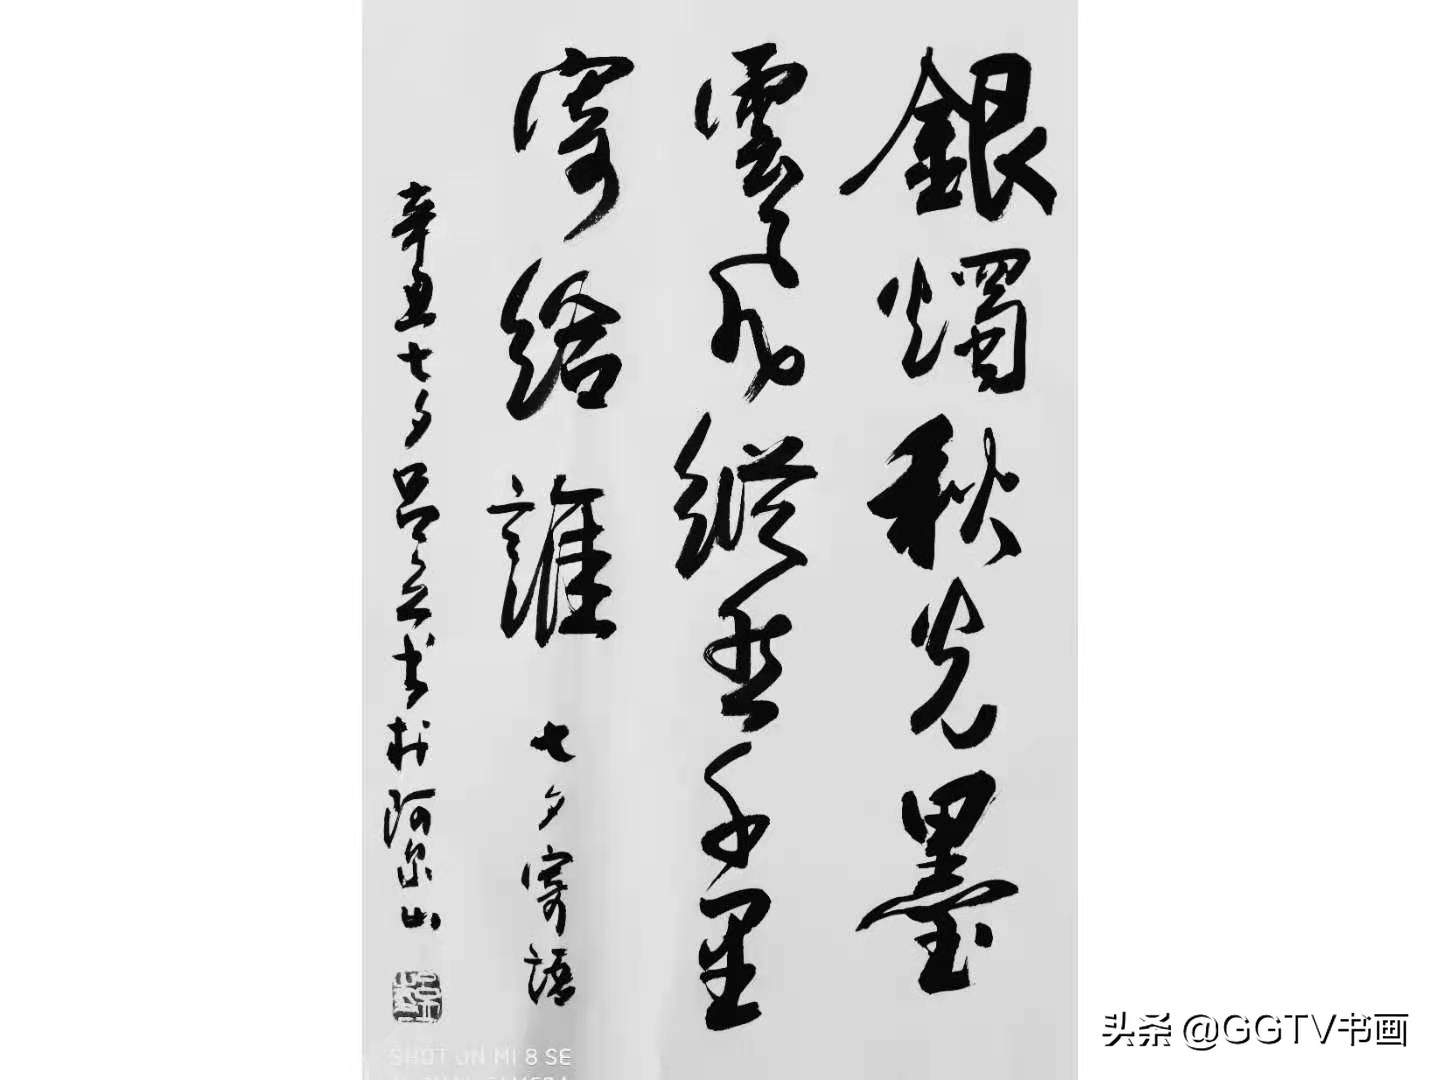 銀燭秋光墨
雲飛縱千里
寄給誰 七夕寄語
辛丑七夕呂書於阿尔山
SHOT ON MI 8 SE
头条 @GGTV书画